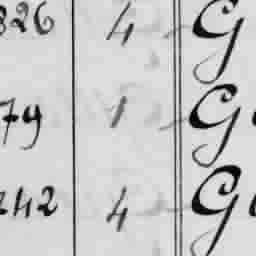 826 4 G
79 1 G
242 4 G